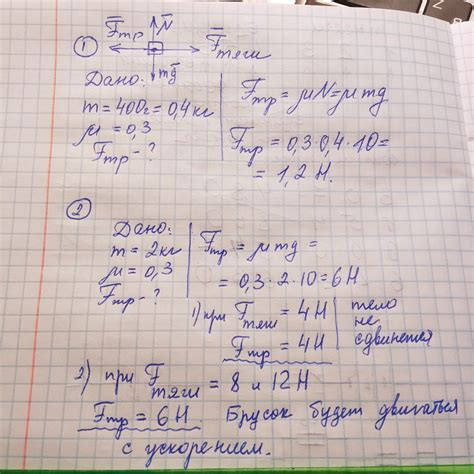 ①
F̅тр N̅ F̅тяги
mg̅
Дано:
m = 400г = 0,4 кг
μ = 0,3
Fтр - ?
Fтр = μN = μmg
Fтр = 0,3·0,4·10 =
= 1,2 Н.
②
Дано:
m = 2 кг
μ = 0,3
Fтр - ?
Fтр = μmg =
= 0,3 · 2 · 10 = 6Н
1) при Fтяги = 4Н
Fтр = 4Н
тело
не
сдвинется
2) при Fтяги = 8 и 12Н
Fтр = 6Н Брусок будет двигаться
с ускорением.